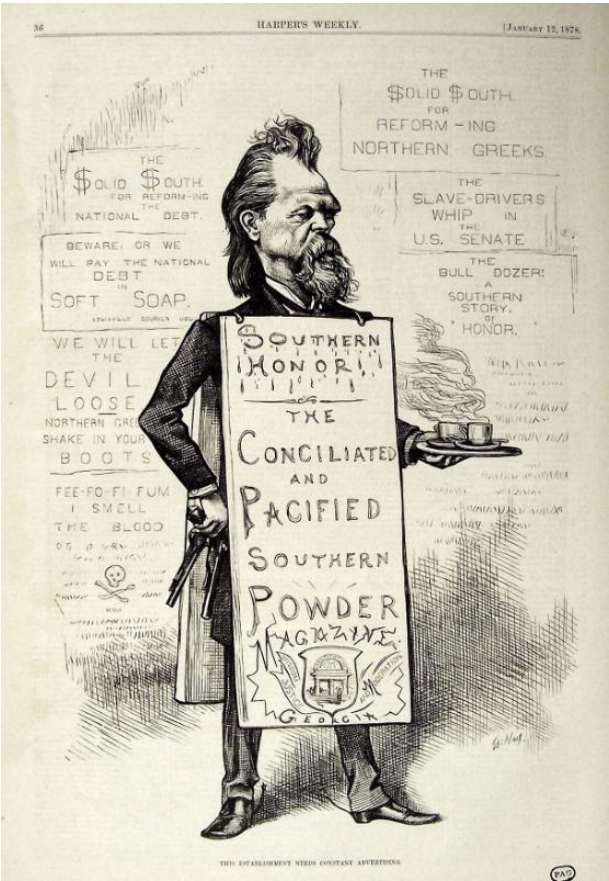 36
HARPER'S WEEKLY.
[JANUARY 12, 1878.
THE
$OLID $OUTH.
FOR REFORM-ING
THE
NATIONAL DEBT.
BEWARE. OR WE
WILL PAY THE NATIONAL
DEBT
IN
SOFT SOAP.
WE WILL LET
THE
DEVIL
LOOSE
NORTHERN
SHAKE IN YOUR
BOOTS
FEE-FO-FI-FUM
I SMELL
THE BLOOD
THE
$OLID $OUTH.
FOR
REFORM-ING
NORTHERN GREEKS.
THE
SLAVE-DRIVERS
WHIP IN
THE
U.S. SENATE
THE
BULL DOZER!
A
SOUTHERN
STORY.
OF
HONOR.
SOUTHERN
HONOR!
THE
CONCILIATED
AND
PACIFIED
SOUTHERN
POWDER
MAGAZINE.
JUSTICE
MODERATION
GEORGIA
Th. Nast.
THIS ESTABLISHMENT NEEDS CONSTANT ADVERTISING.
PAG